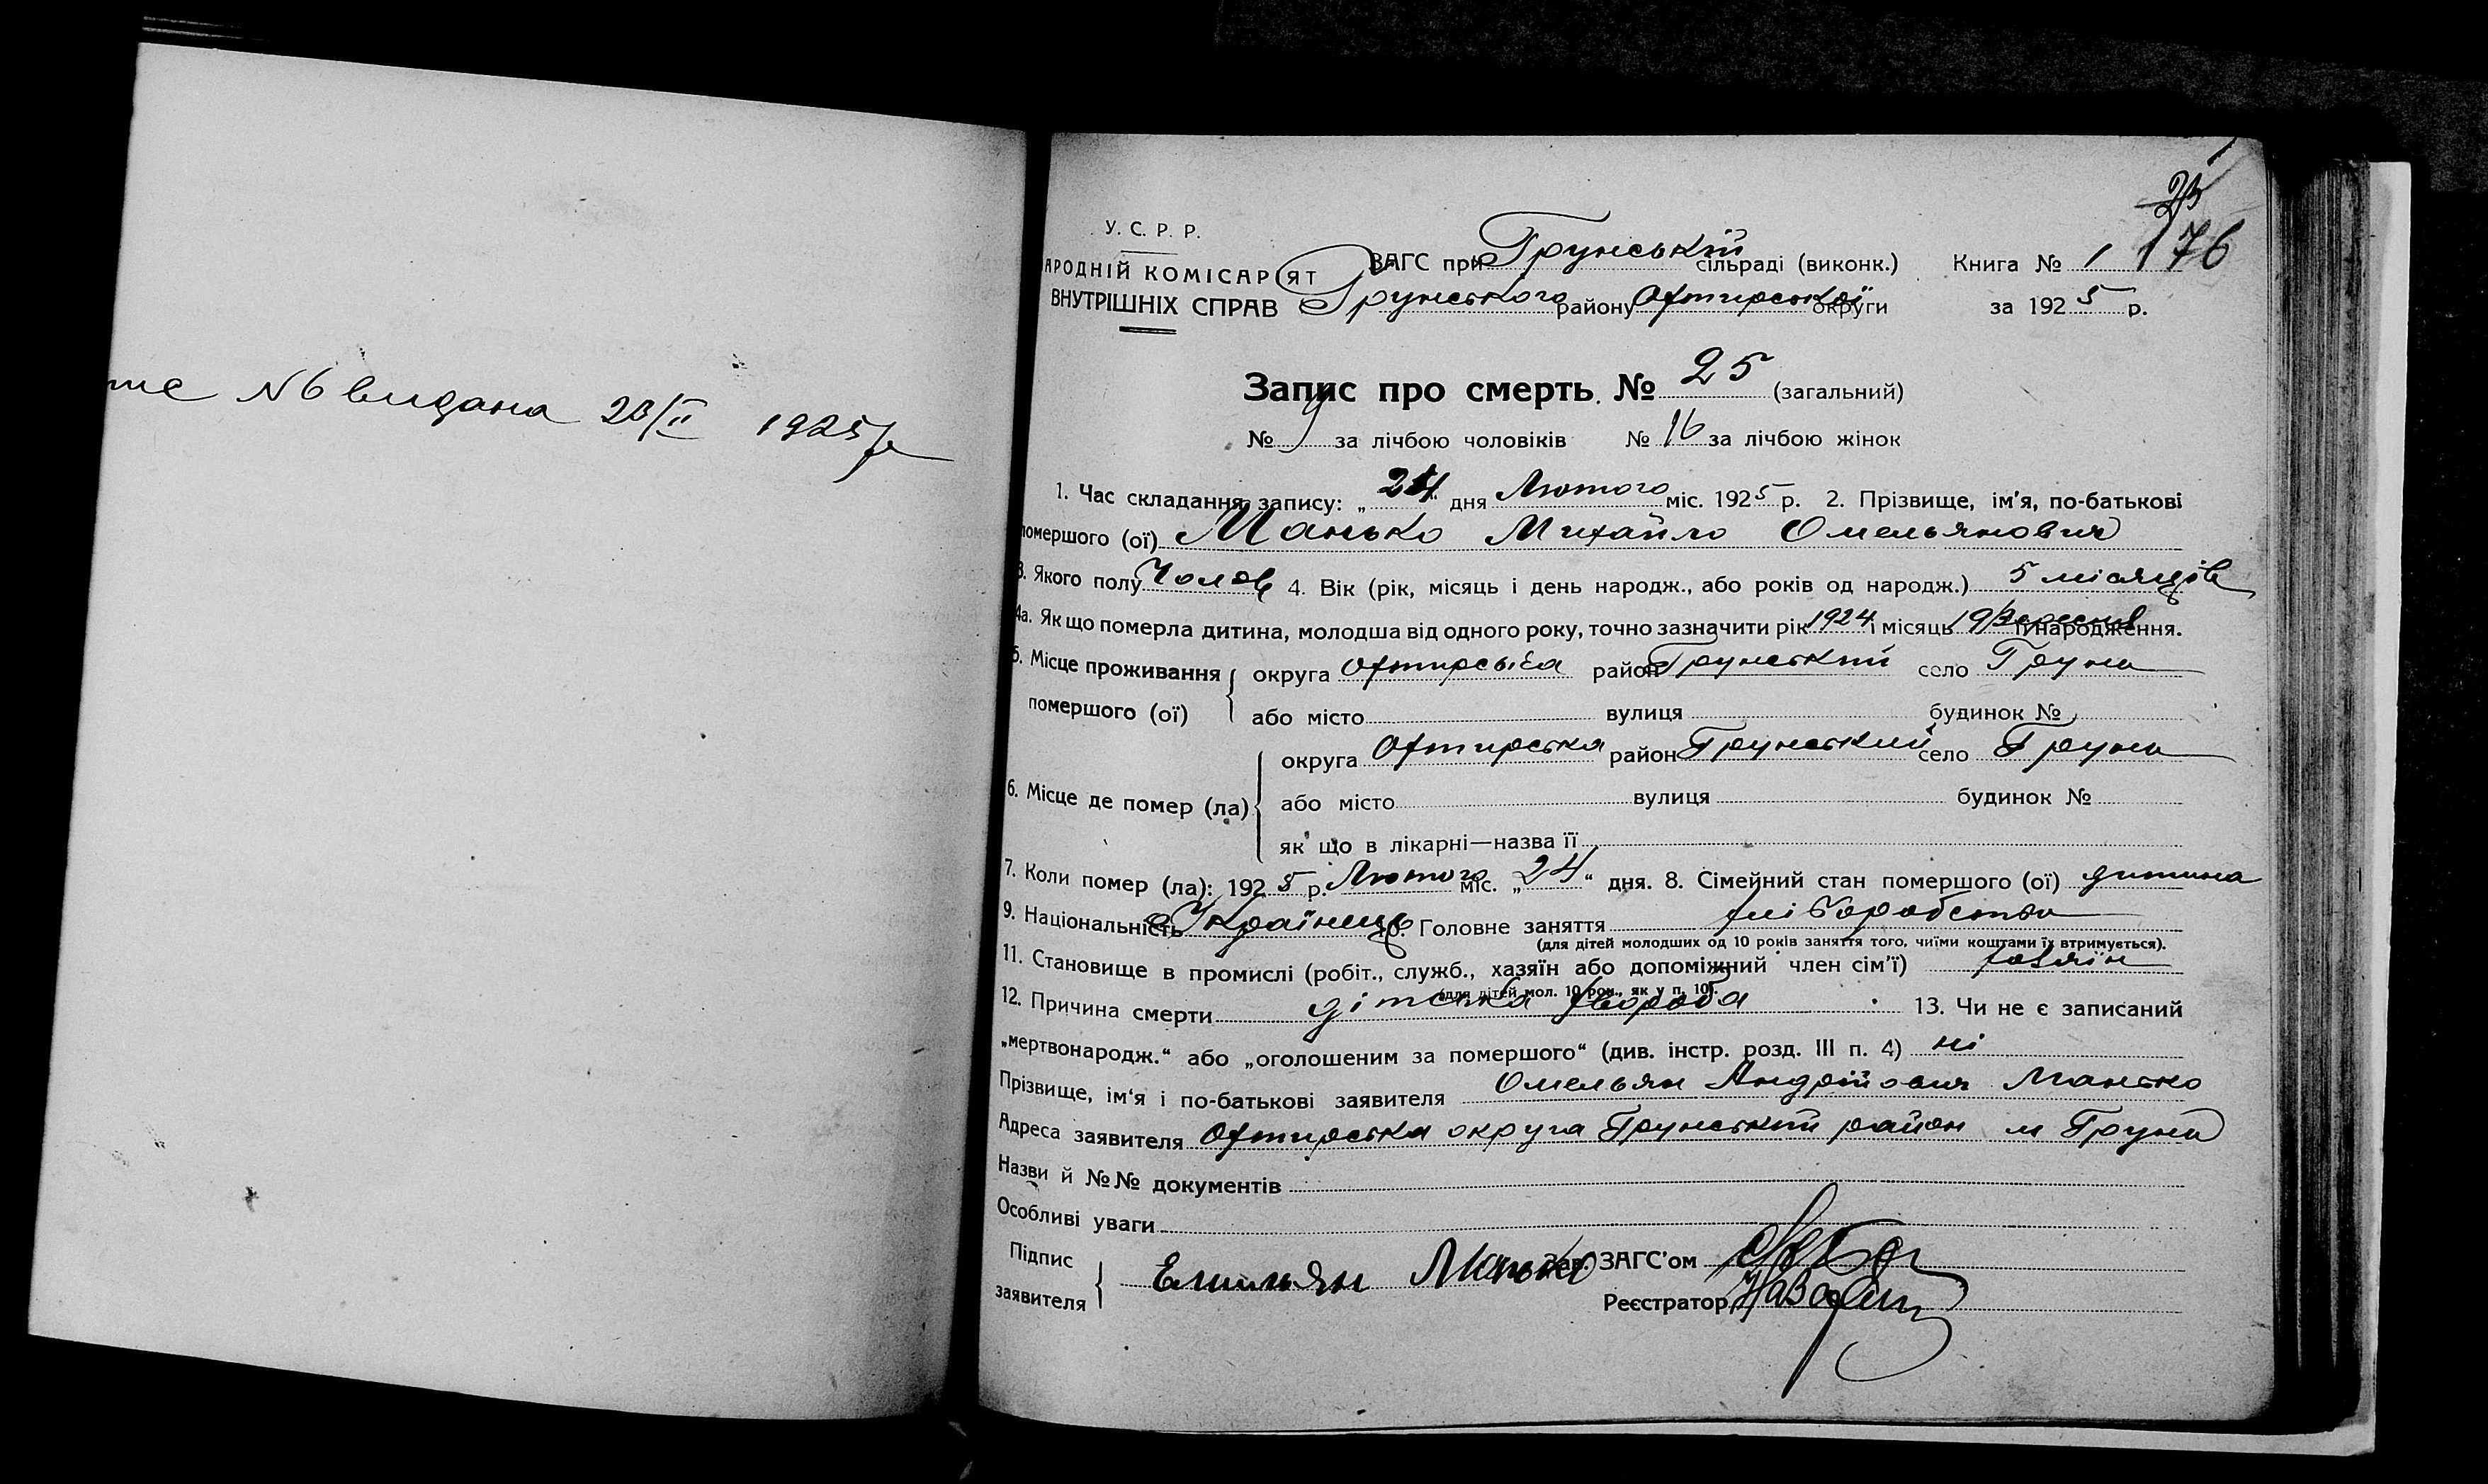 № 6 видана 23/II 1925 р
25
176
У. С. Р. Р.
АРОДНІЙ КОМІСАРІЯТ
ВНУТРІШНІХ СПРАВ
ЗАГС при Грунській сільраді (виконк.) Книга № 1
Грунського району Охтирської округи за 1925 р.
Запис про смерть. № 25 (загальний)
№ 9 за лічбою чоловіків № 16 за лічбою жінок
1. Час складання запису: „24“ дня Лютого міс. 1925 р. 2. Прізвище, ім'я, по-батькові
помершого (ої) Манько Михайло Омельянович
3. Якого полу Чолов 4. Вік (рік, місяць і день народж., або років од народж.) 5 місяців
4а. Як що померла дитина, молодша від одного року, точно зазначити рік 1924 і місяць 19 Вересня її народження.
5. Місце проживання округа Охтирська район Грунський село Грунь
помершого (ої) або місто вулиця будинок №
округа Охтирська район Грунський село Грунь
6. Місце де помер (ла) або місто вулиця будинок №
як що в лікарні—назва її
7. Коли помер (ла): 1925 р. Лютого міс. „24“ дня. 8. Сімейний стан помершого (ої) дитина
9. Національність Українець 10. Головне заняття хліборобство
(для дітей молодших од 10 років заняття того, чиїми коштами їх втримується).
11. Становище в промислі (робіт., служб., хазяїн або допоміжний член сім'ї) хазяїн
(для дітей мол. 10 рок., як у п. 10).
12. Причина смерти дітська хвороба 13. Чи не є записаний
„мертвонародж.“ або „оголошеним за помершого“ (див. інстр. розд. III п. 4) ні
Прізвище, ім'я і по-батькові заявителя Омельян Андрійович Манько
Адреса заявителя Охтирська округа Грунський район м Грунь
Назви й №№ документів
Особливі уваги
Підпис
заявителя Емильян Манько Зав. ЗАГС'ом
Реєстратор